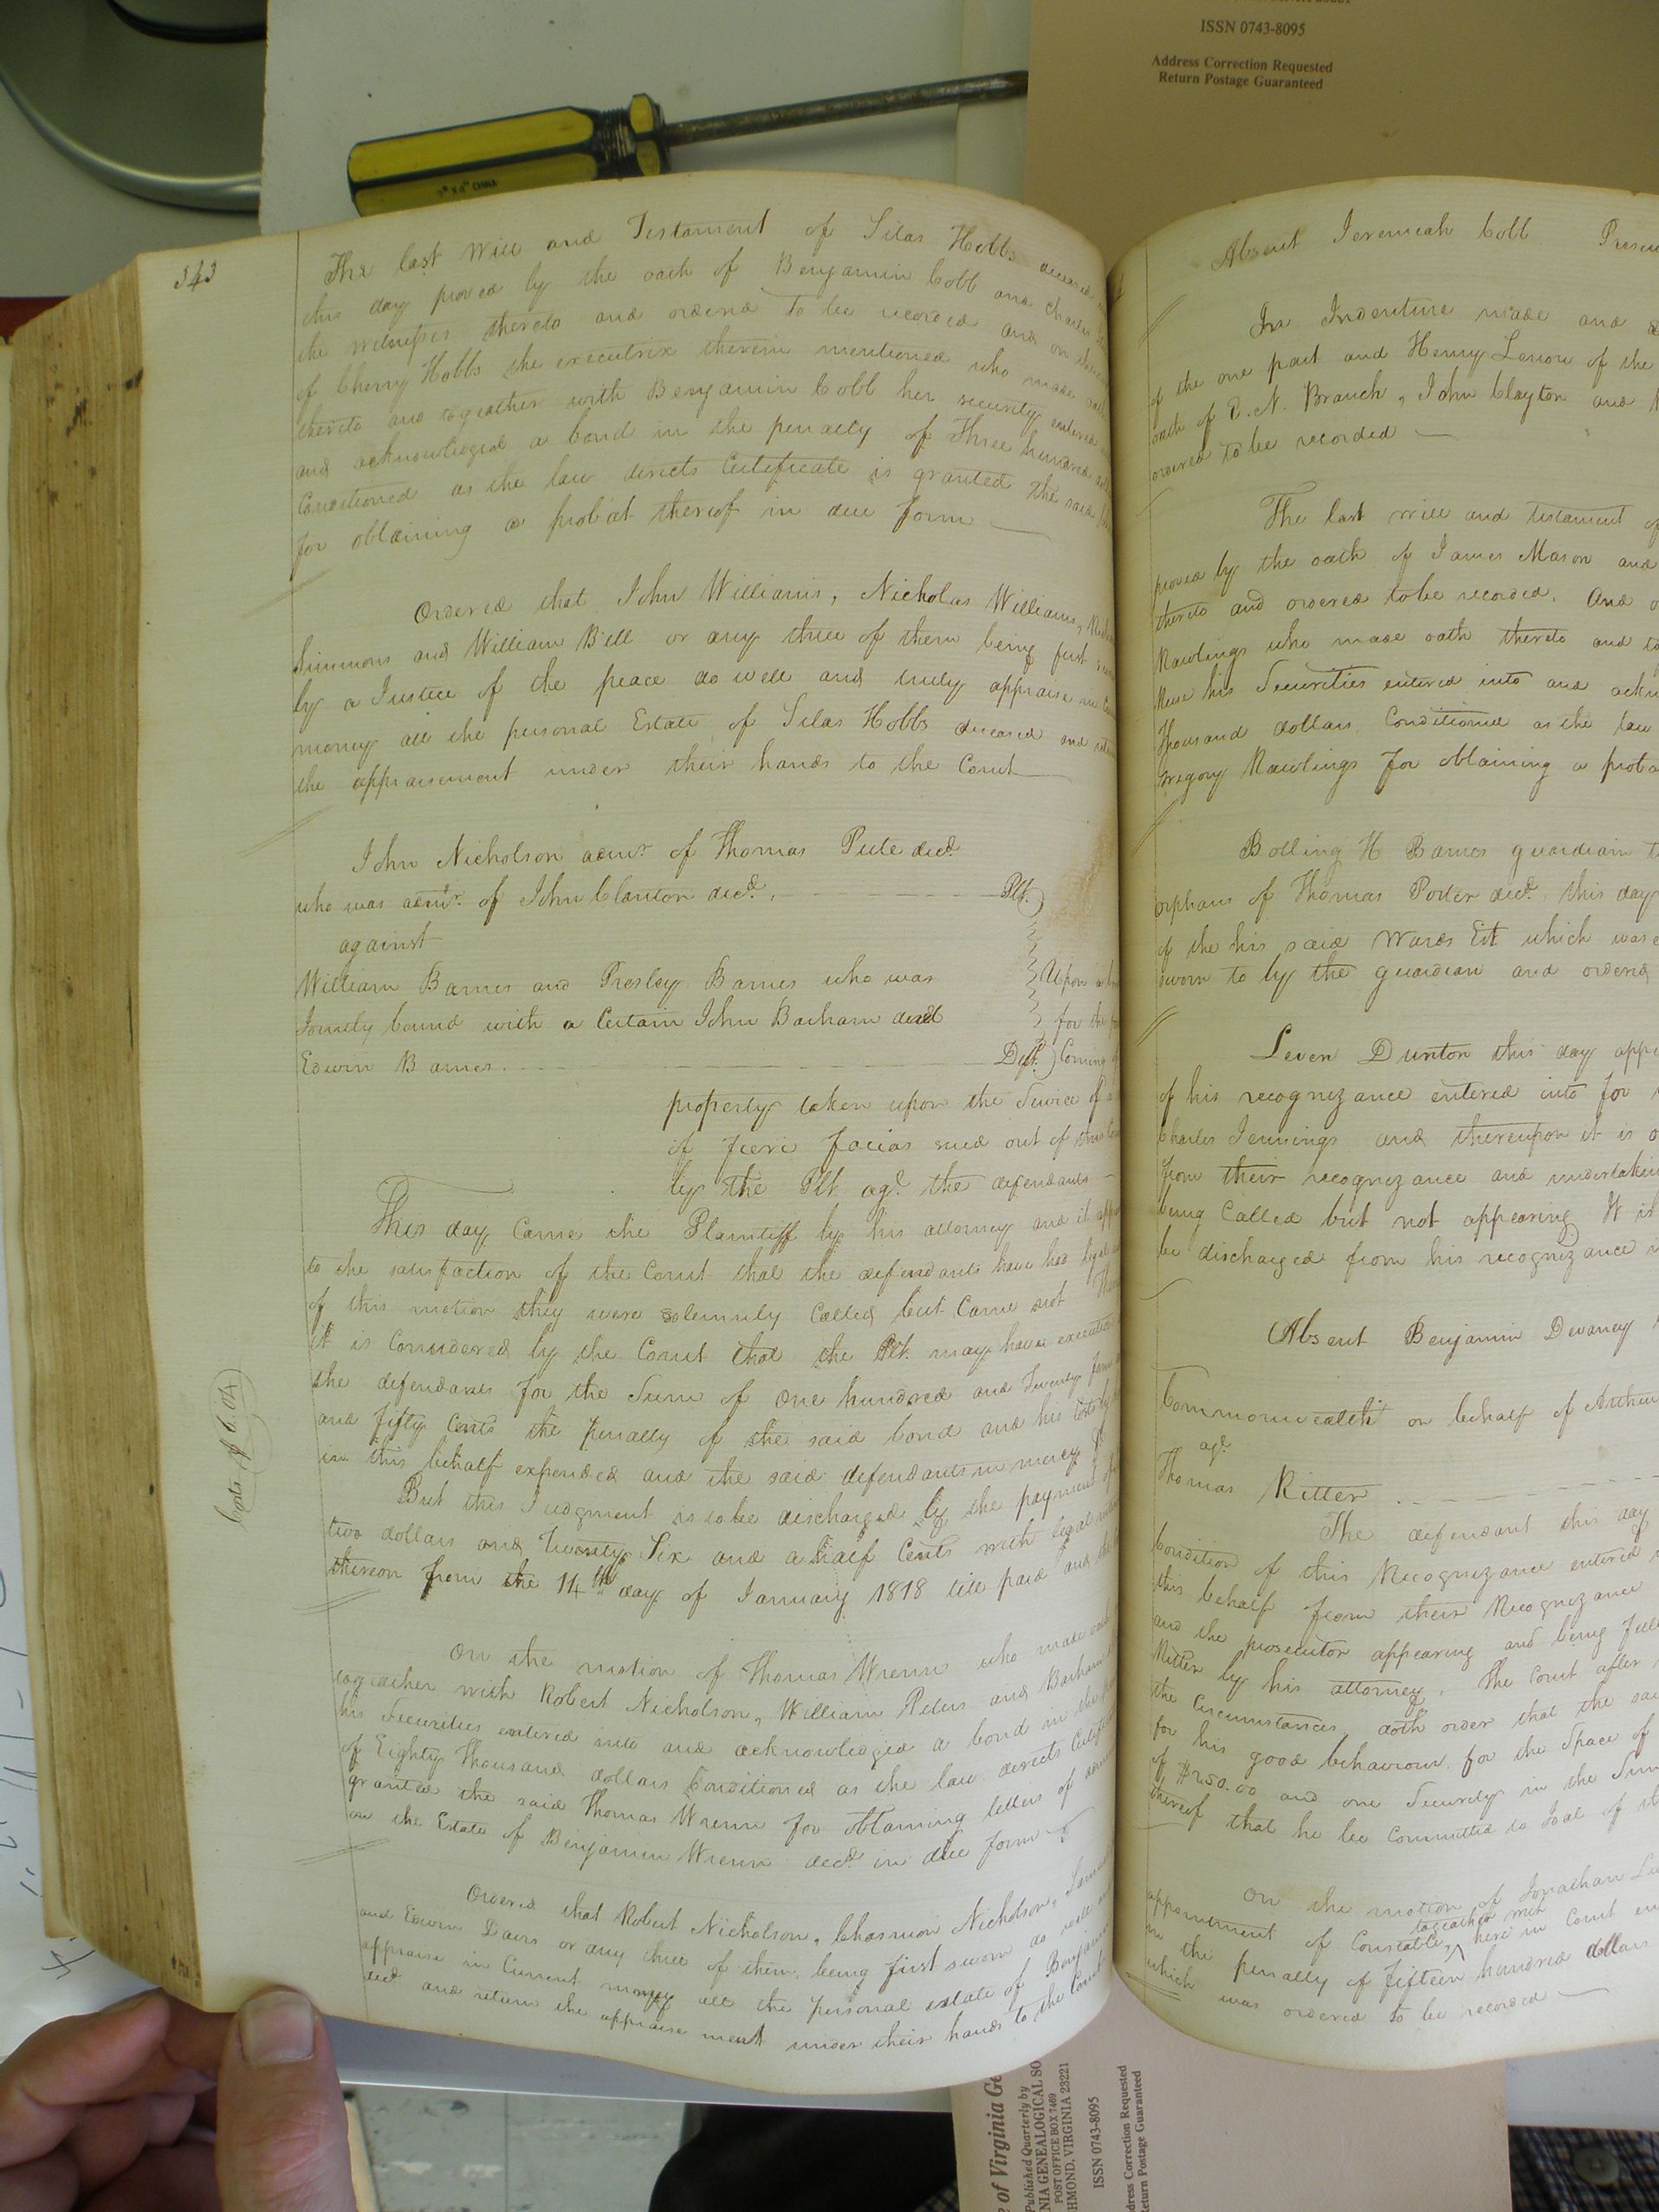 ISSN 0743-8095
Address Correction Requested
Return Postage Guaranteed
CHINA
343
The last Will and Testament of Silas Hobbs deceased
this day proved by the oath of Benjamin Cobb and Charles
the witnesses thereto and ordered to be recorded and on the
of Cherry Hobbs the executrix therein mentioned who made oath
thereto and togeather with Benjamin Cobb her security entered
and acknowledged a bond in the penalty of Three hundred
Conditioned as the law directs Certificate is granted the said
for obtaining a probat thereof in due form
Ordered that John Williams, Nicholas Williams,
Simmons and William Bell or any three of them being first
by a Justice of the peace do well and truly appraise in
money all the personal Estate of Silas Hobbs deceased and
the appraisement under their hands to the Court
John Nicholson admr. of Thomas Pete decd.
who was admr. of John Clanton decd. Plt.
against
William Barnes and Presley Barnes who was
Jointly bound with a Certain John Barham and
Edwin Barnes Deft.
Upon a
for the
Coming
property taken upon the Service of a
of fieri facias sued out of this
by the Plt. agt. the defendants
This day Came the Plaintiff by his attorney and it
to the satisfaction of the Court that the defendants have had legal
of this motion they were solemnly Called but Came not
it is Considered by the Court that the Plt. may have execution
the defendants for the Sum of One hundred and Twenty four
and fifty Cents the penalty of the said bond and his Costs by
in this behalf expended and the said defendants in mercy &
But this Judgment is to be discharged by the payment of
two dollars and Twenty Six and a half Cents with legal
thereon from the 14th day of January 1818 till paid and
On the motion of Thomas Wrenn who made oath
togeather with Robert Nicholson, William Peters and Barham
his Securities entered into and acknowledged a bond in the
of Eighty Thousand dollars Conditioned as the law directs
granted the said Thomas Wrenn for obtaining letters of
on the Estate of Benjamin Wrenn decd. in due form
Ordered that Robert Nicholson, Chasmion Nicholson,
and Edwin Davis or any three of them, being first sworn do well
appraise in Current money all the personal estate of Benjamin
decd. and return the appraisement under their hands to the Court
Absent Jeremeah Cobb
An Indenture made and
of the one part and Henry Lenow of the
oath of E. N. Branch, John Clayton and
ordered to be recorded
The last will and testament of
proved by the oath of James Mason and
thereto and ordered to be recorded. And
Rawlings who made oath thereto and
his Securities entered into and
Thousand dollars Conditioned as the law
Gregory Rawlings for obtaining a
Bolling H Barnes guardian
orphans of Thomas Porter decd. this day
of the his said Wards Est which was
sworn to by the guardian and ordered
Leven Dunton this day
of his recognizance entered into for
Charles Jennings and thereupon it is
from their recognizance and undertaking
being Called but not appearing It is
be discharged from his recognizance
Absent Benjamin Devaney
Commonwealth on behalf of Arthur
agt.
Thomas Ritter
The defendant this day
Condition of this Recognizance entered
this behalf from their Recognizance
and the prosecutor appearing and being
Ritter by his attorney, The Court after
the Circumstances, doth order that the
for his good behaviour for the Space of
of $250.00 and one Security in the Sum
thereof that he be Committed to Goal of
On the motion of Jonathan
appointment of Constable togeather with here in Court
in the penalty of fifteen hundred dollars
which was ordered to be recorded
of Virginia
Published Quarterly by
GENEALOGICAL
POST OFFICE BOX 7469
VIRGINIA 23221
ISSN 0743-8095
Address Correction Requested
Return Postage Guaranteed